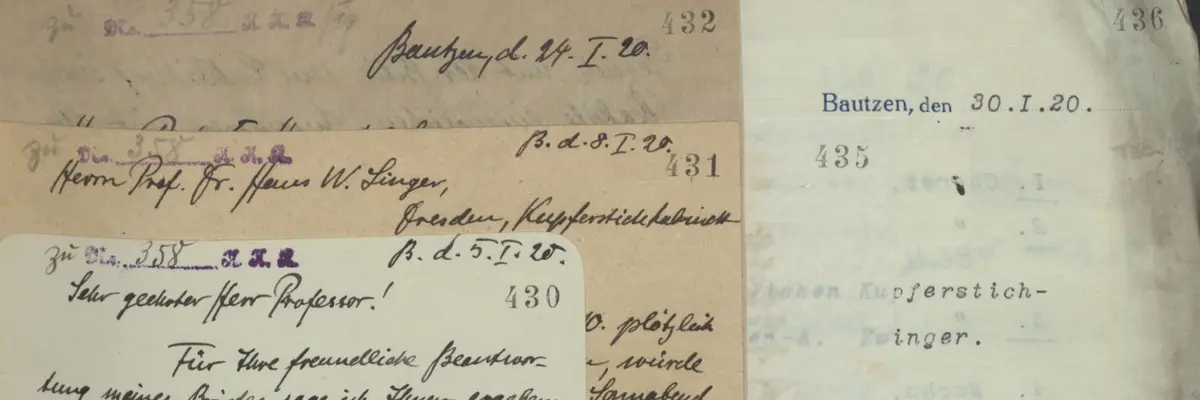 zu Dln. 358 K K A
432
Bautzen, d. 24. I. 20.
zu Dln. 358 K K A
B. d. 8. I. 20.
431
Herrn Prof. Dr. Hans W. Singer,
Dresden, Kupferstichkabinett
zu Dln. 358 K K A
B. d. 5. I. 20.
Sehr geehrter Herr Professor!
430
Für Ihre freundliche Beantwor-
tung meines Briefes sage ich Ihnen
10. plötzlich
würde
Sonnabend
436
Bautzen, den 30.I.20.
435
1.
2. "
3. "
4.
lichen Kupferstich-
inger.